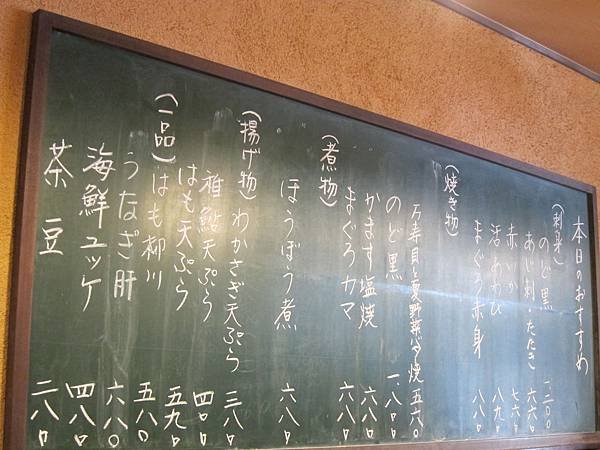 本日のおすすめ
(刺身)
のど黒 一、二〇〇
あじ刺・たたき 六六〇
赤いか 七六〇
活あわび 八九〇
まぐろ赤身 八八〇
(焼き物)
万寿貝と夏野菜バター焼 五六〇
のど黒 一、八〇〇
かます塩焼 六八〇
まぐろカマ 六八〇
(煮物)
ほうぼう煮 六八〇
(揚げ物)
わかさぎ天ぷら 三八〇
稚鮎天ぷら 四〇〇
はも天ぷら 五九〇
(一品)
はも柳川 五八〇
うなぎ肝 六八〇
海鮮ユッケ 四八〇
茶豆 二八〇